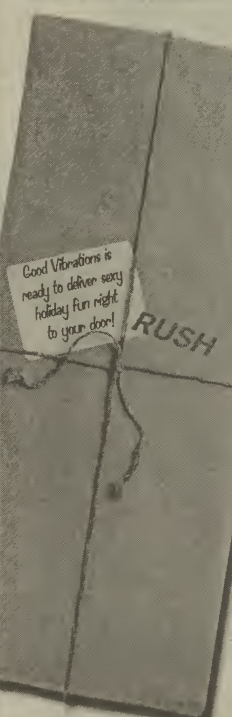 Good Vibrations is
ready to deliver sexy
holiday fun right
to your door!
RUSH